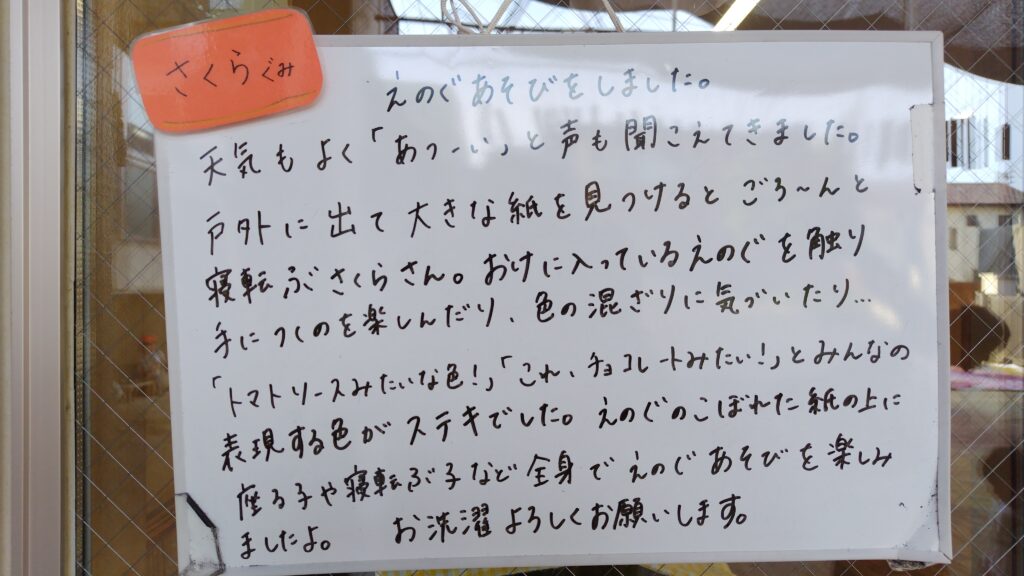 さくらぐみ
えのぐあそびをしました。
天気もよく「あつーい」と声も聞こえてきました。
戸外に出て大きな紙を見つけるとごろ〜んと
寝転ぶさくらさん。おけに入っているえのぐを触り
手につくのを楽しんだり、色の混ざりに気づいたり…
「トマトソースみたいな色!」「これ、チョコレートみたい!」とみんなの
表現する色がステキでした。えのぐのこぼれた紙の上に
座る子や寝転ぶ子など全身でえのぐあそびを楽しみ
ましたよ。 お洗濯よろしくお願いします。